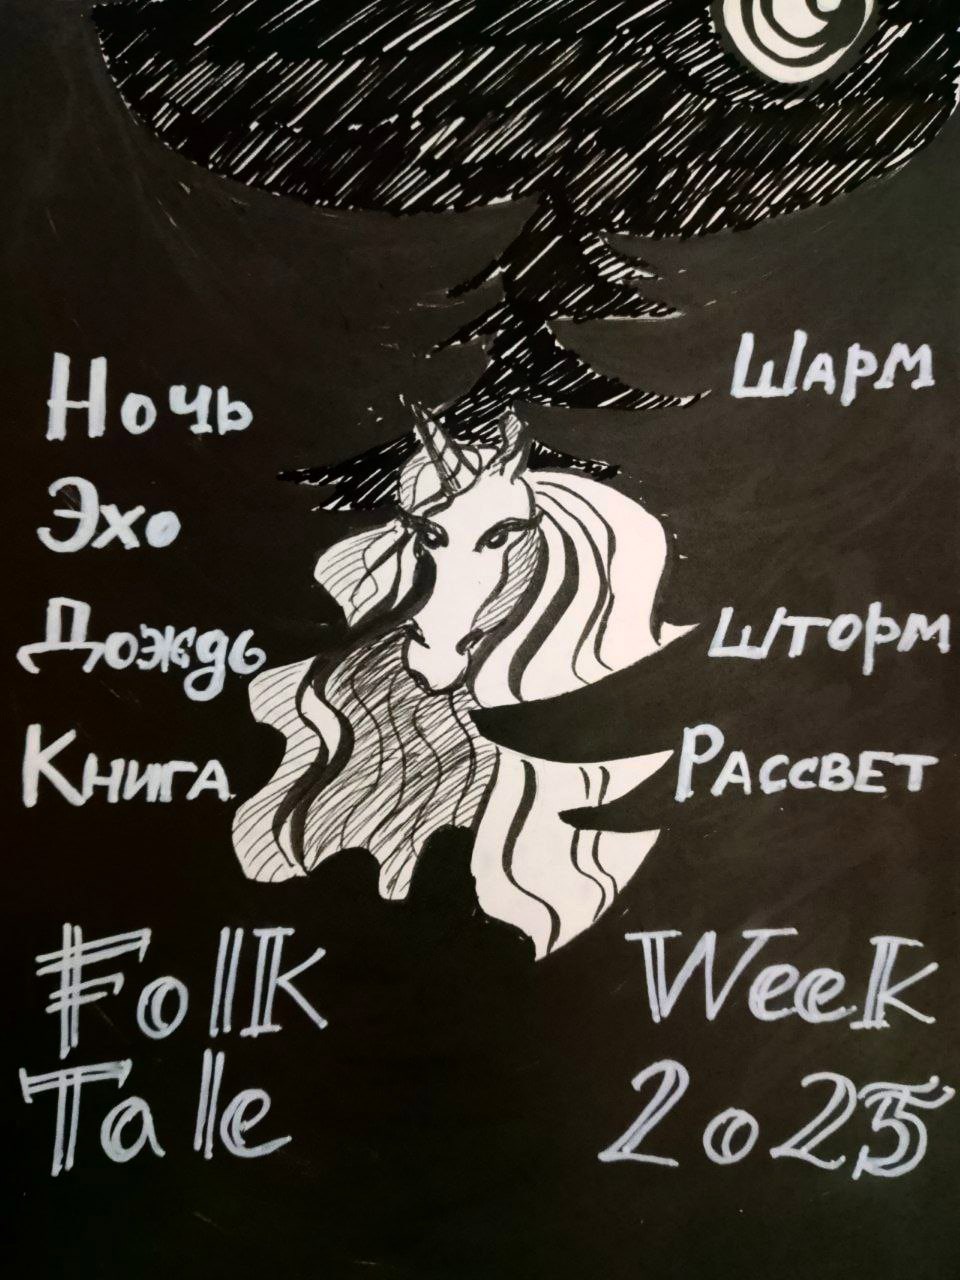 Ночь
Эхо
Дождь
Книга
Шарм
Шторм
Рассвет
Folk Week
Tale 2025